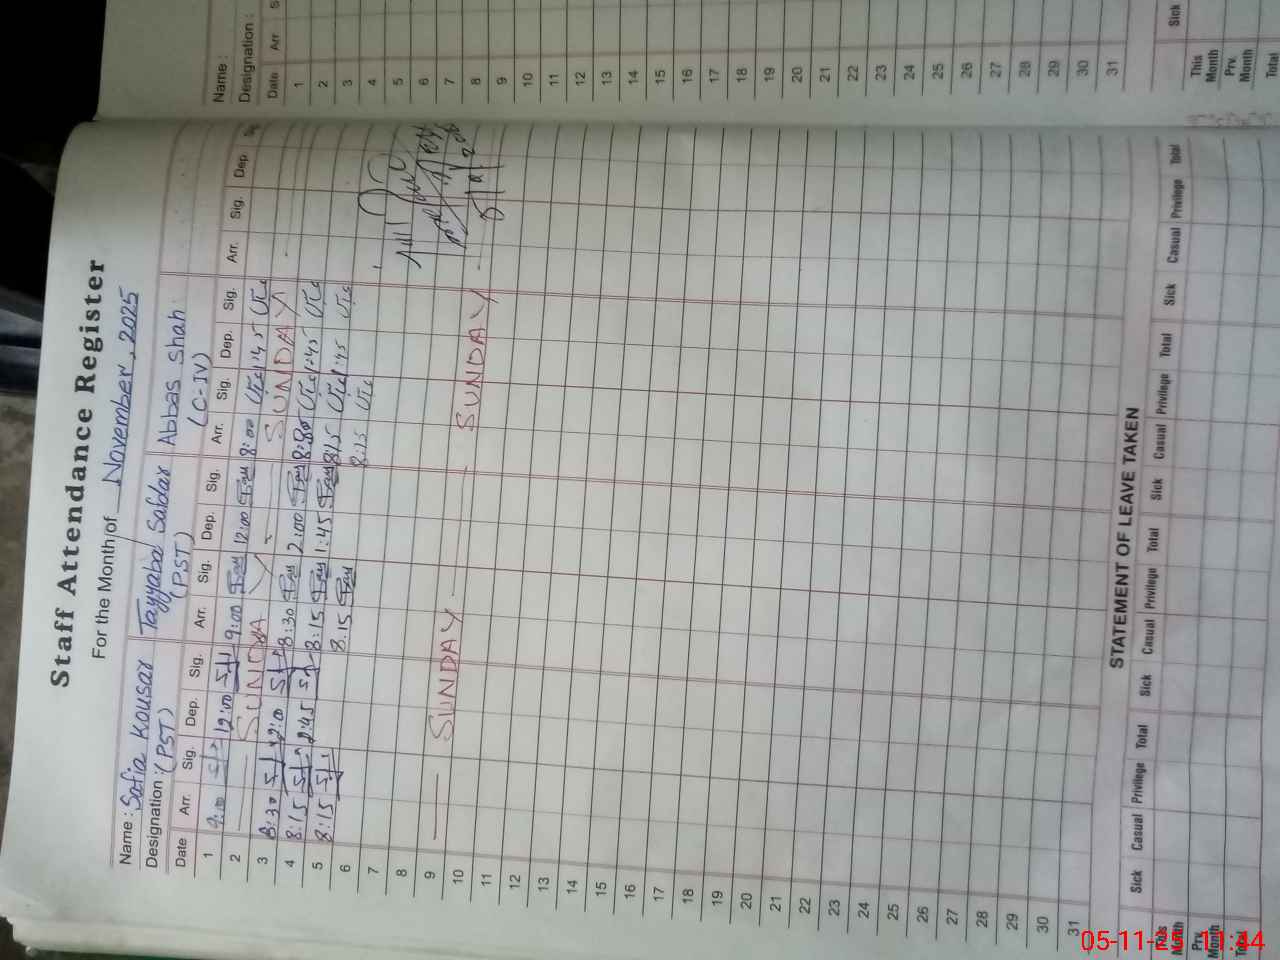 Staff Attendance Register
For the Month of November, 2025
Name : Safia Kousar Tayyaba Safdar Abbas Shah
Designation : (PST) (PST) (C-IV)
Date Arr. Sig. Dep. Sig. Arr. Sig. Dep. Sig. Arr. Sig. Dep. Sig. Arr. Sig. Dep. Sig.
1 9:00 12:00 9:00 12:00 8:00 1:45
2 SUNDAY SUNDAY
3 8:30 2:00 8:30 2:00 8:00 1:45
4 8:15 2:45 8:15 1:45 8:15 1:45
5 8:15 8:15 8:15
6
7
8
9 SUNDAY SUNDAY
10
11
12
13
14
15
16
17
18
19
20
21
22
23
24
25
26
27
28
29
30
31
STATEMENT OF LEAVE TAKEN
Sick Casual Privilege Total Sick Casual Privilege Total Sick Casual Privilege Total Sick Casual Privilege Total
This Month
Prv. Month
Total
Name :
Designation :
Date Arr S
1
2
3
4
5
6
7
8
9
10
11
12
13
14
15
16
17
18
19
20
21
22
23
24
25
26
27
28
29
30
31
Sick
This Month
Prv. Month
Total
05-11-25 11:44